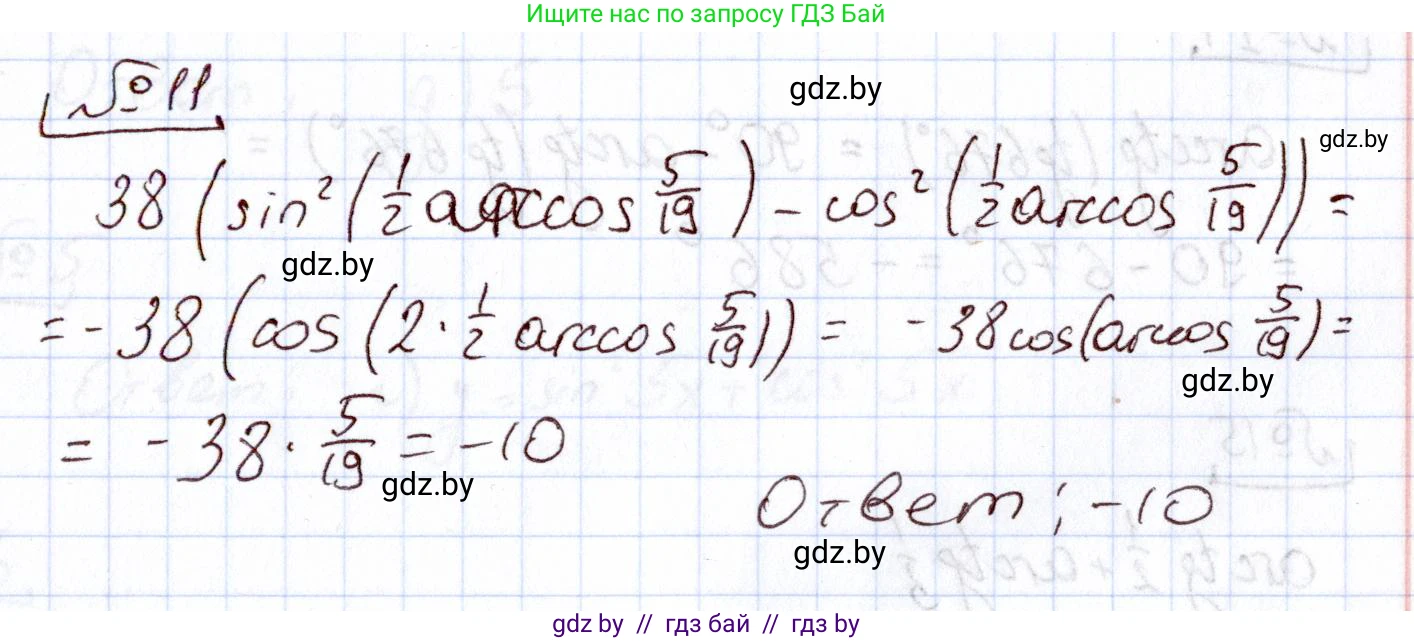 Ищите нас по запросу ГДЗ Бай
№11
gdz.by
gdz.by
38 (sin² (1/2 arccos 5/19) - cos² (1/2 arccos 5/19)) =
gdz.by
= - 38 (cos (2 · 1/2 arccos 5/19)) = - 38 cos (arccos 5/19) =
gdz.by
= - 38 · 5/19 = -10
gdz.by
Ответ: -10
gdz.by
gdz.by // гдз бай // гдз by